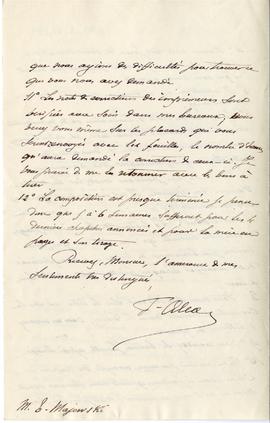 que nous ayions des difficultés pour trouver ce
que vous nous avez demandé.
11° Les notes de corrections des imprimeurs sont
avec soin dans mes bureaux, vous
vous même sur les placards qui vous
avec les feuilles, le nombre d'heures
qu'aura demandé la correction de ceux-ci, Je
vous prierai de me les retourner avec le bon à
tirer
12° La composition est presque terminée je pense
donc que 5 à 6 semaines suffiront pour les
derniers chapitres annoncés et pour la mise en
pages et le tirage.
Recevez, Monsieur, l'assurance de mes
sentiments très distingués,
F. Alcan
M. E. Majewski